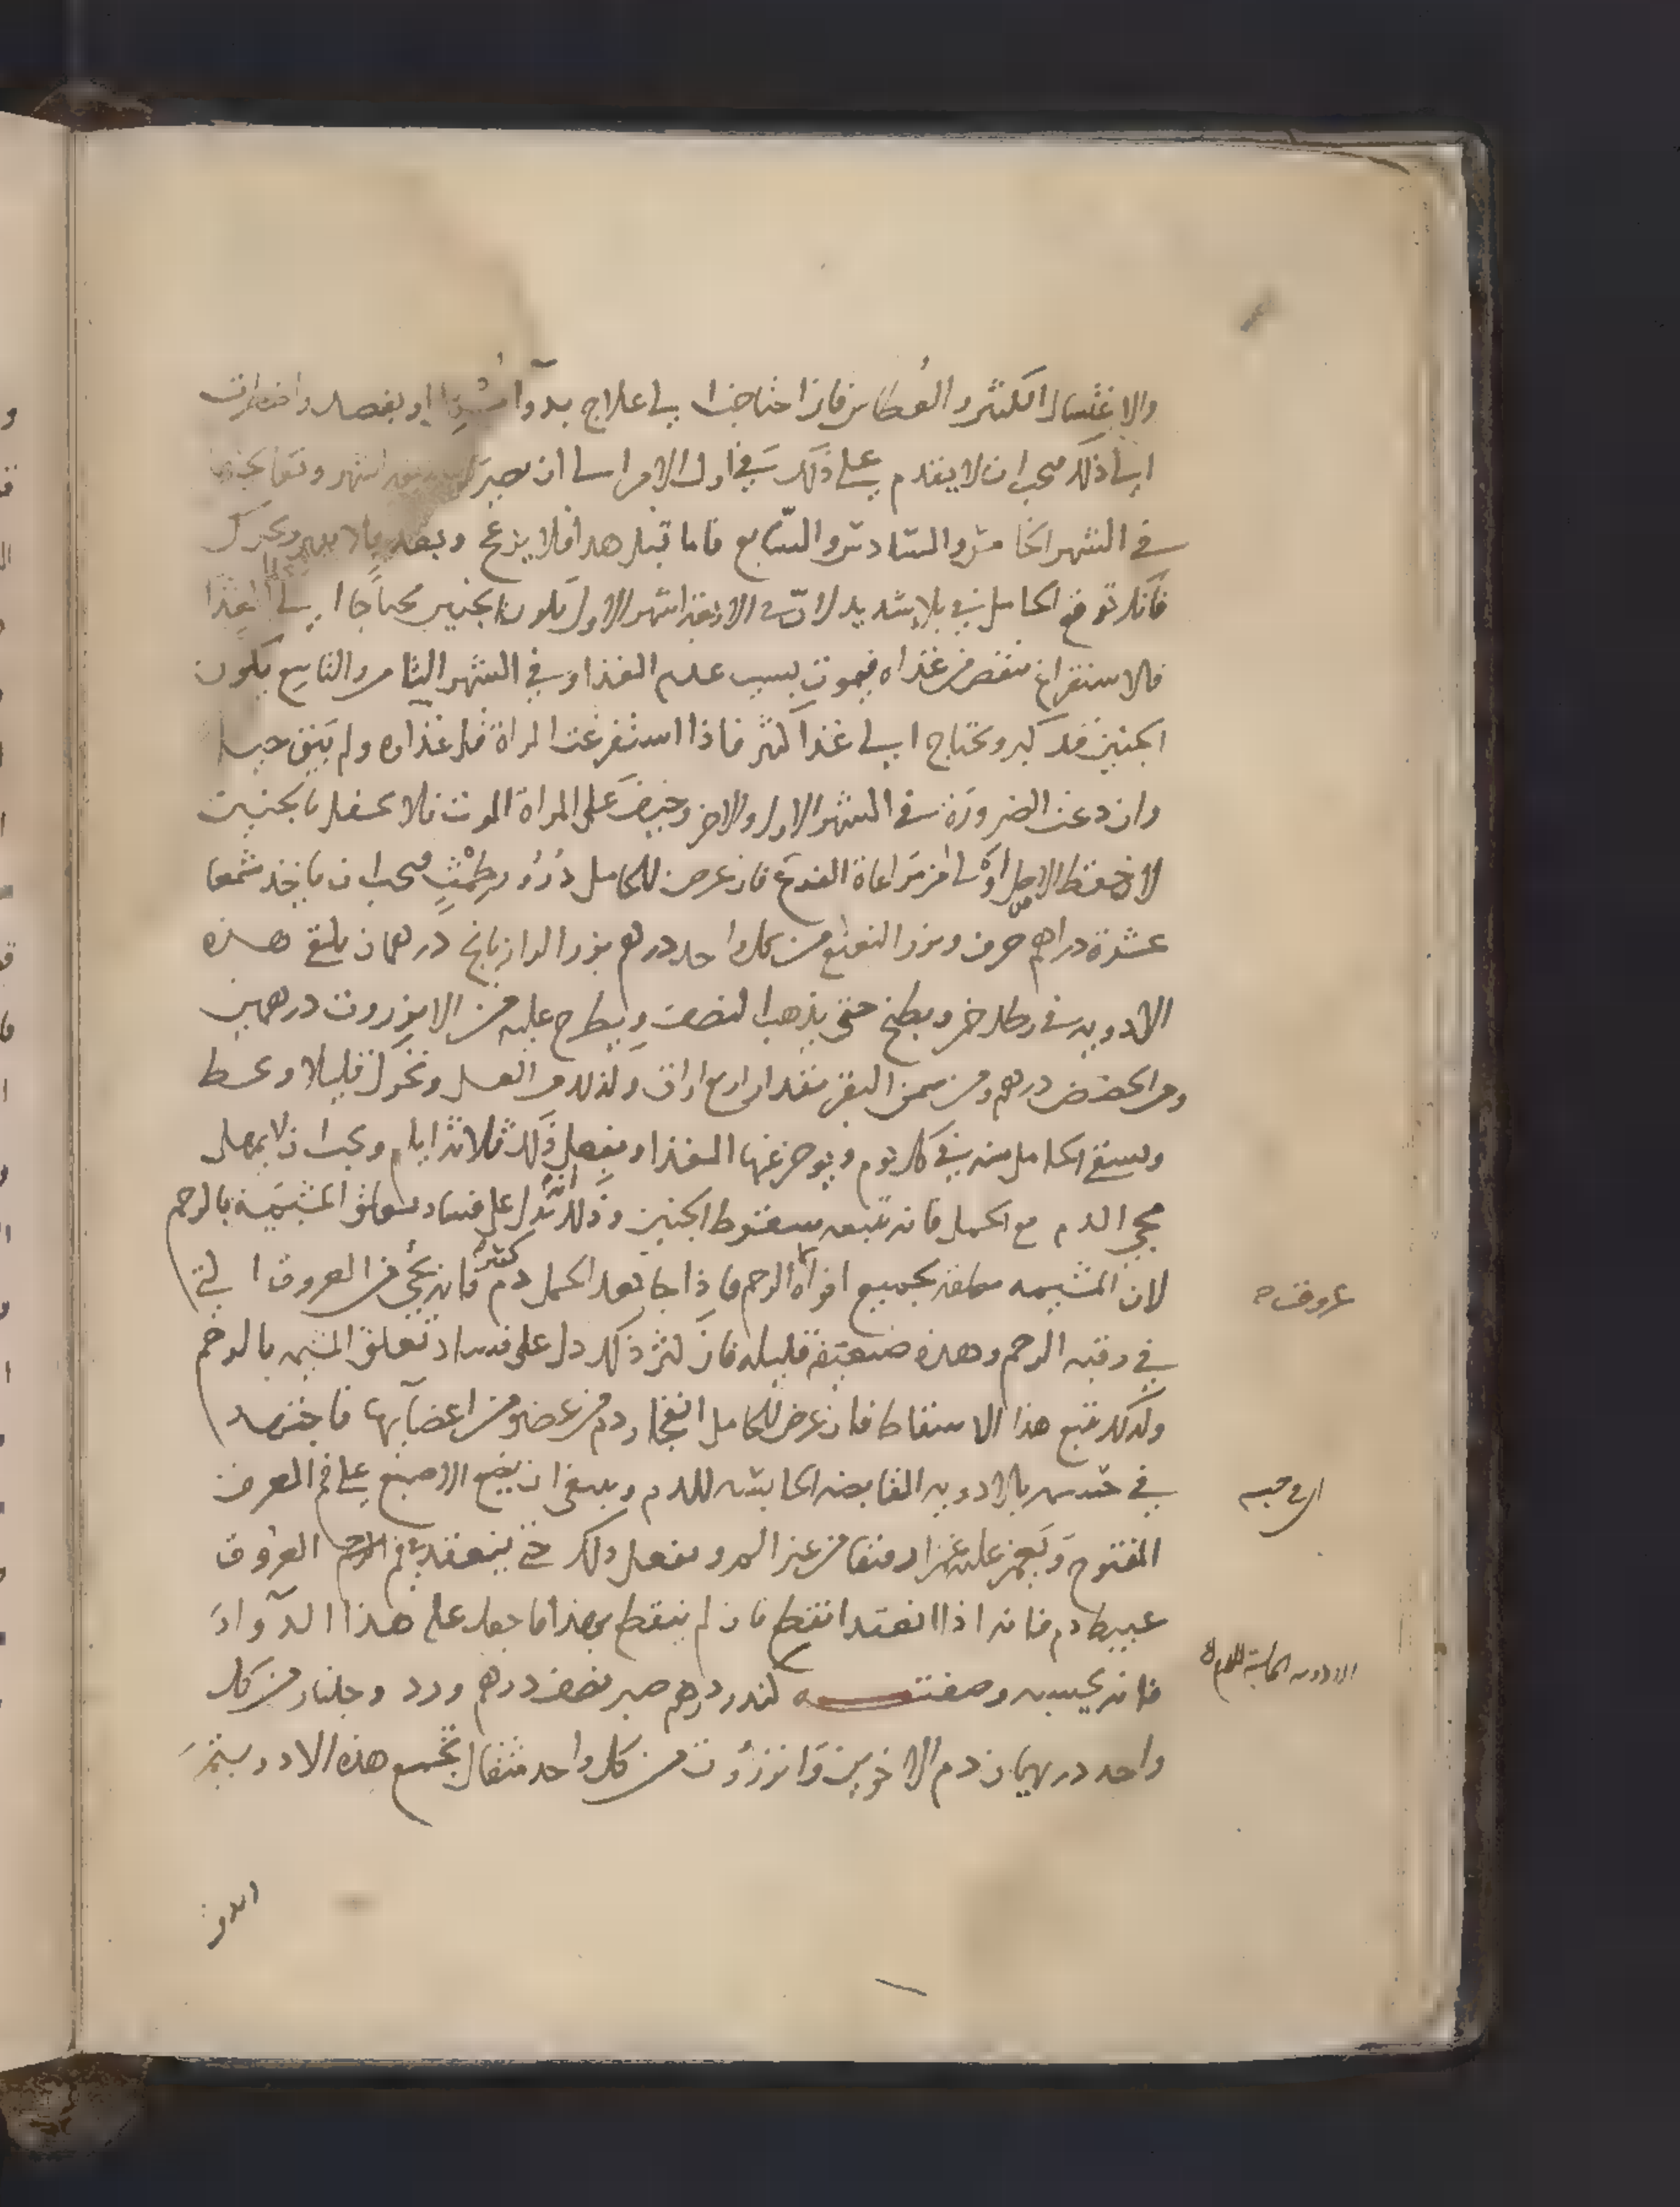 والاغتسال الكثير والعُطاس فان احتاجت الى علاج بدوآ او بفصد واضطرت
الى ذلك فيجب ان لا يقدم على ذلك في اول الامر الى ان يصير اربعة اشهر وتعالجها
في الشهر الخامس والسادس والسابع فاما قبل هذا فلا يزعج وبعد
فانك توقع الحامل في بلا شديد لان في الاربعة اشهر الاول يكون الجنين محتاجًا الى الغذا
فالاستفراغ ينقص من غذاه فيموت بسبب عدم الغذا وفي الشهر الثامن والتاسع يكون
الجنين قد كبر ويحتاج الى غذا كثير فاذا استفرغت المراة قل غذاوه ولم يبق حيا
وان دعت الضرورة في الشهر الاول والاخر وخيف على المراة الموت فلا تحفل بالجنين
لان حفظ الاصل اولى من مراعاة الفرع فان عرض للحامل دُرُور طمثٍ فيجب ان ياخذ شمعا
عشرة دراهم حرف وبزر النعنع من كل واحد درهم بزر الرازيانج درهمان يلقى هذه
الادويه في رطل خمر ويطبخ حتى يذهب النصف ويطرح عليه من الانزروت درهمين
ومن الحضض درهم ومن سمن البقر مقدار اربع اواق وكذلك من العسل وتحرك قليلا وتحط
ويسقى الحامل منه في كل يوم ويوخر عنها الغذا ويفعل ذلك ثلاثة ايام ويجب ان لا يهمل
مجي الدم مع الحمل فانه يتبعه سقوط الجنين وذلك انه يدل على فساد تعلق المشيمة بالرحم
لان المشيمه معلقه بجميع افواه الرحم فاذا جا بعد الحمل دم كثير فانه يجئ من العروق التي
في رقبه الرحم وهذه ضعيفة قليله فان كثر ذلك دل على فساد تعلق المشيمه بالرحم
ولذلك يتبع هذا الاسقاط فان عرض للحامل انفجار دم من عضو من اعضآيها فاجتهد
في حبسه بالادويه القابضه الحابسه للدم وينبغي ان يضع الاصبع على فم العرق
المفتوح ويغمز عليه غمزا رفيقا من غير المد ويفعل ذلك حتى ينعقد في فم العروق
عبيط دم فانه اذا انعقد انقطع فان لم ينقطع بهذا فاجعل على هذا الدوآ
فانه يحبسه وصفته كندر درهم صبر نصف درهم ورد وجلنار من كل
واحد درهمان دم الاخوين وانزروت من كل واحد مثقال تجمع هذه الادويه
عروق
اي في حبسه
الادويه الحابسة للدم